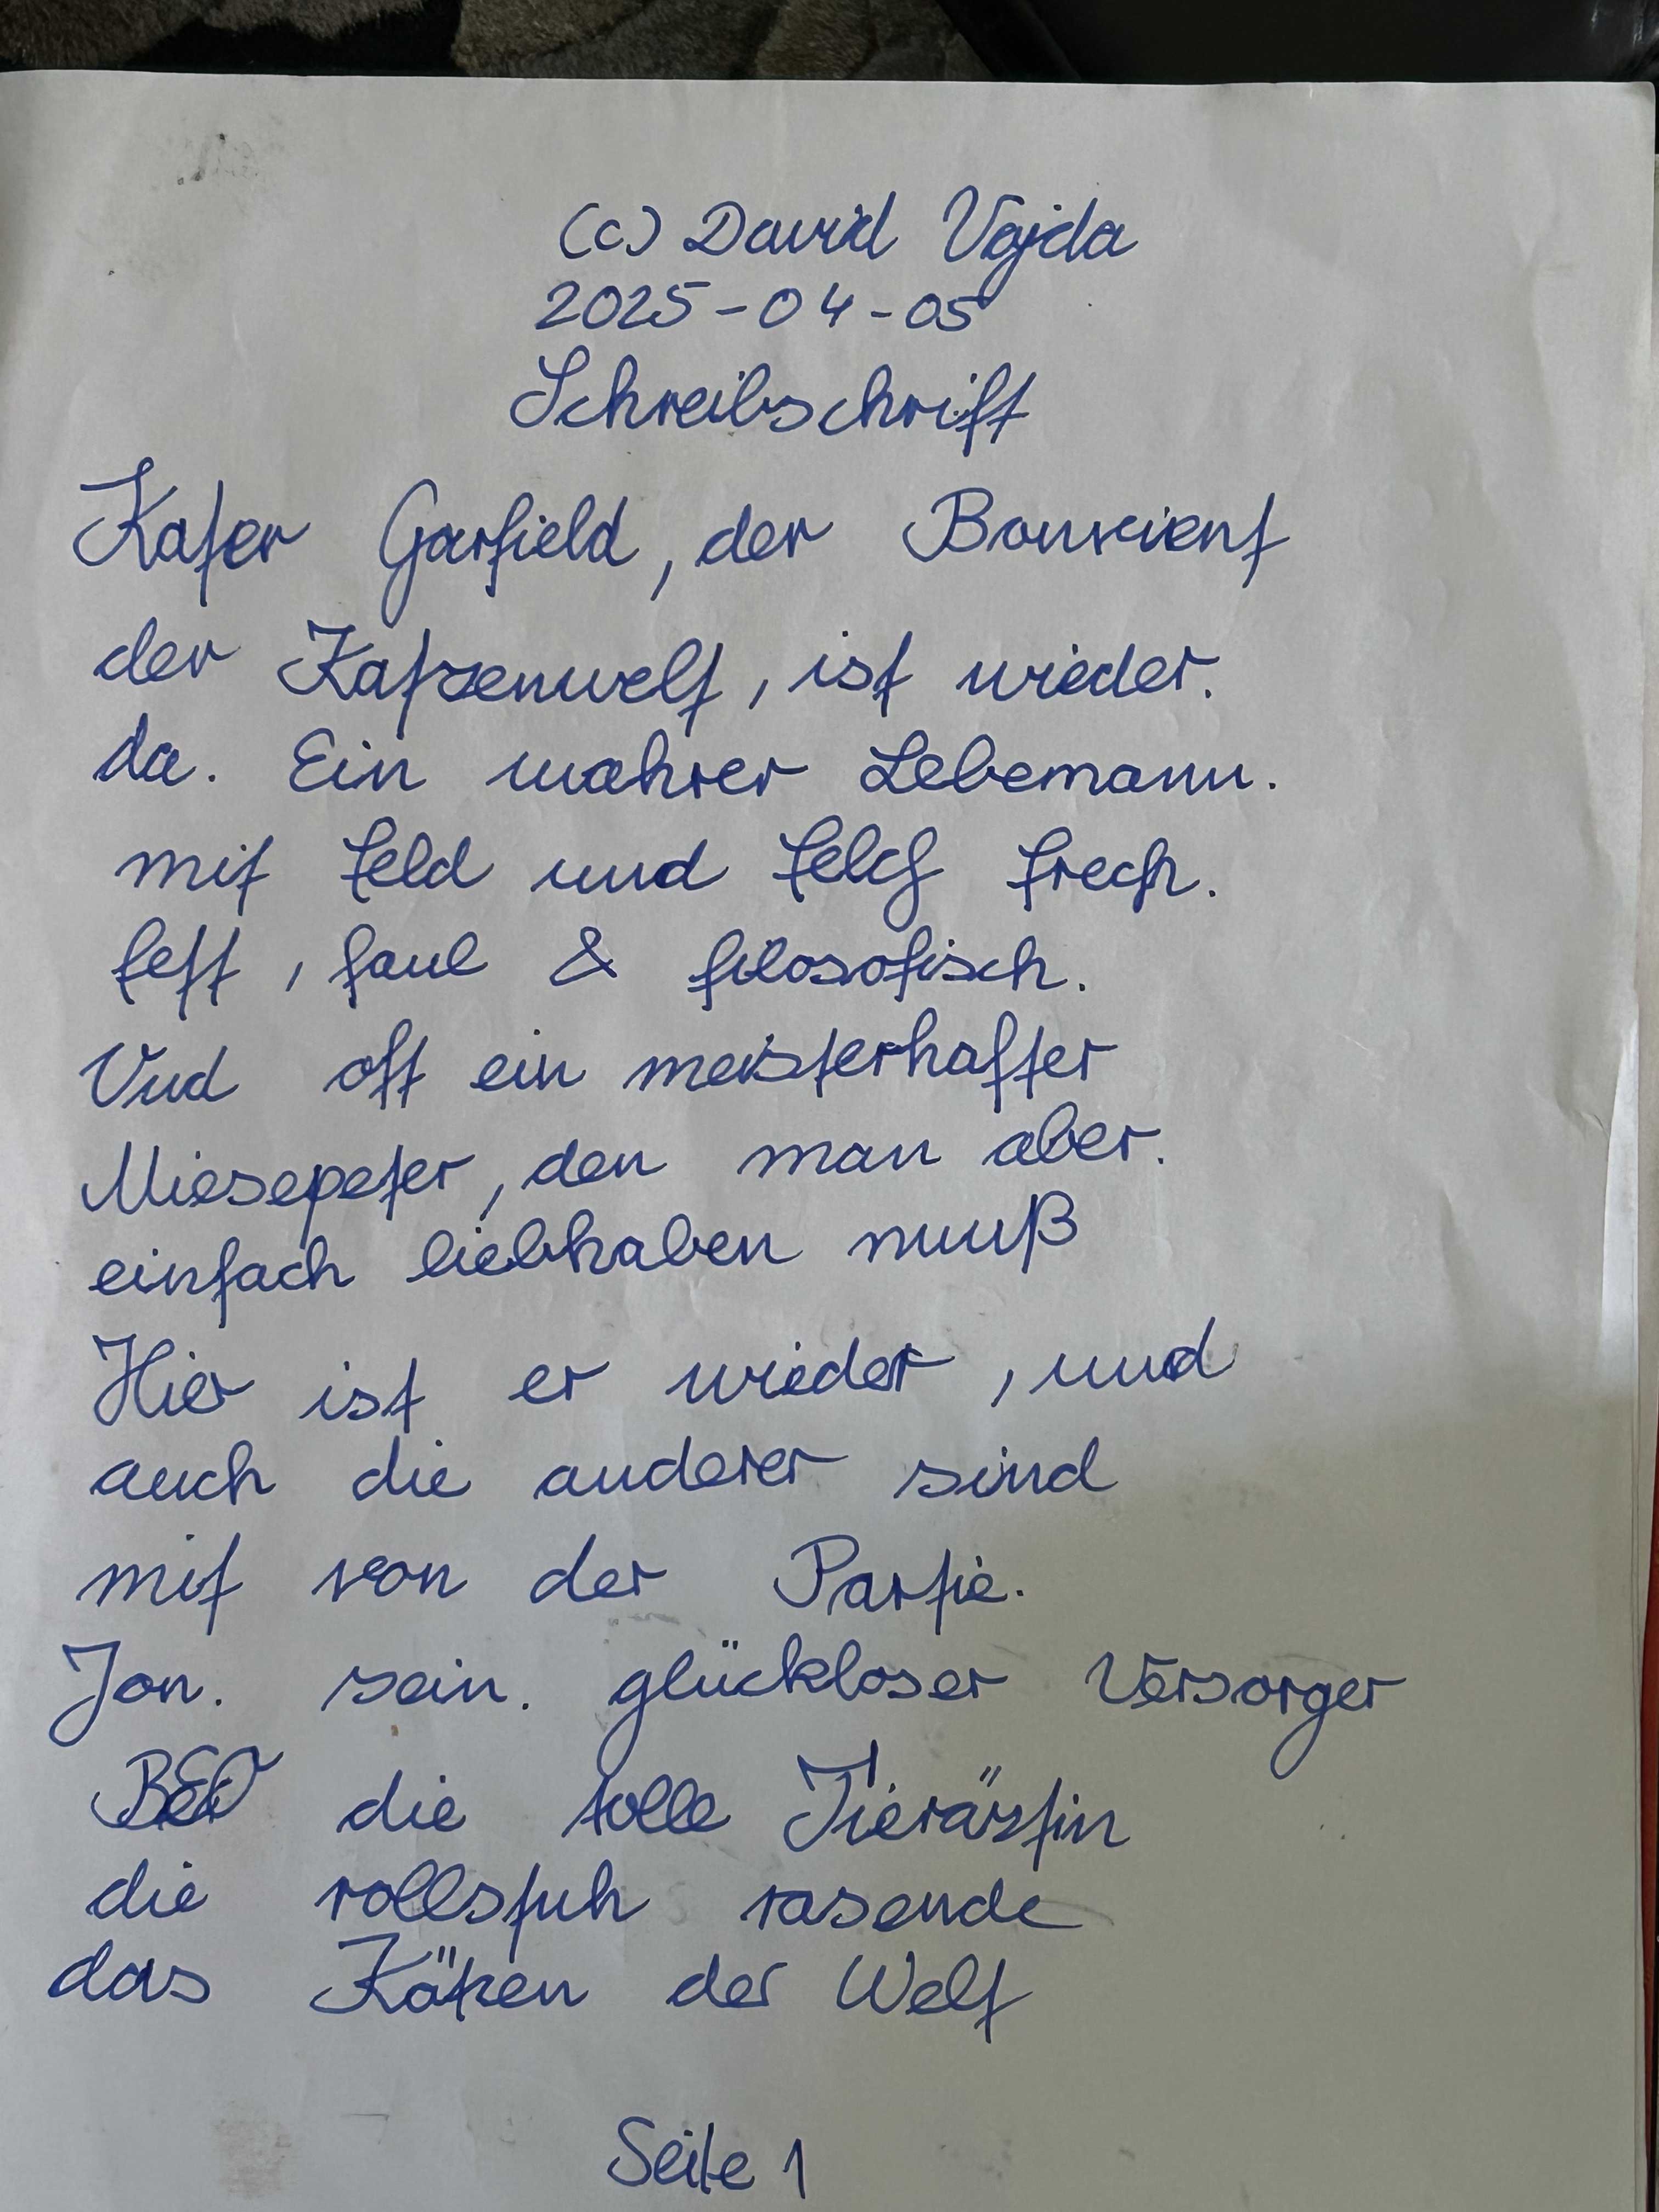 (c) David Vajda
2025-04-05
Schreibschrift
Kater Garfield, der Bonvient
der Katzenwelt, ist wieder.
da. Ein wahrer Lebemann.
mit feld und frech.
fett, faul & filosofisch.
Und oft ein meisterhafter
Miesepeter, den man aber.
einfach liebhaben muß
Hier ist er wieder, und
auch die anderer sind
mit von der Partie.
Jon. sein. glückloser Versorger
die tolle Tierärztin
die rollstuh rasende
das der Welt
Seite 1